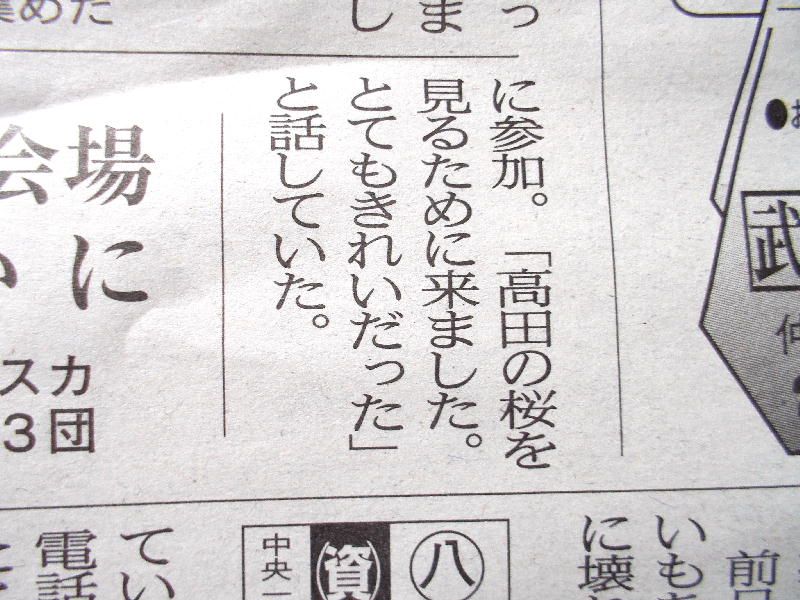 に参加。「高田の桜を
見るために来ました。
とてもきれいだった」
と話していた。
場に
会い
カ団
ス3
武
八
中央
前日
いも
に壊
てい
電話